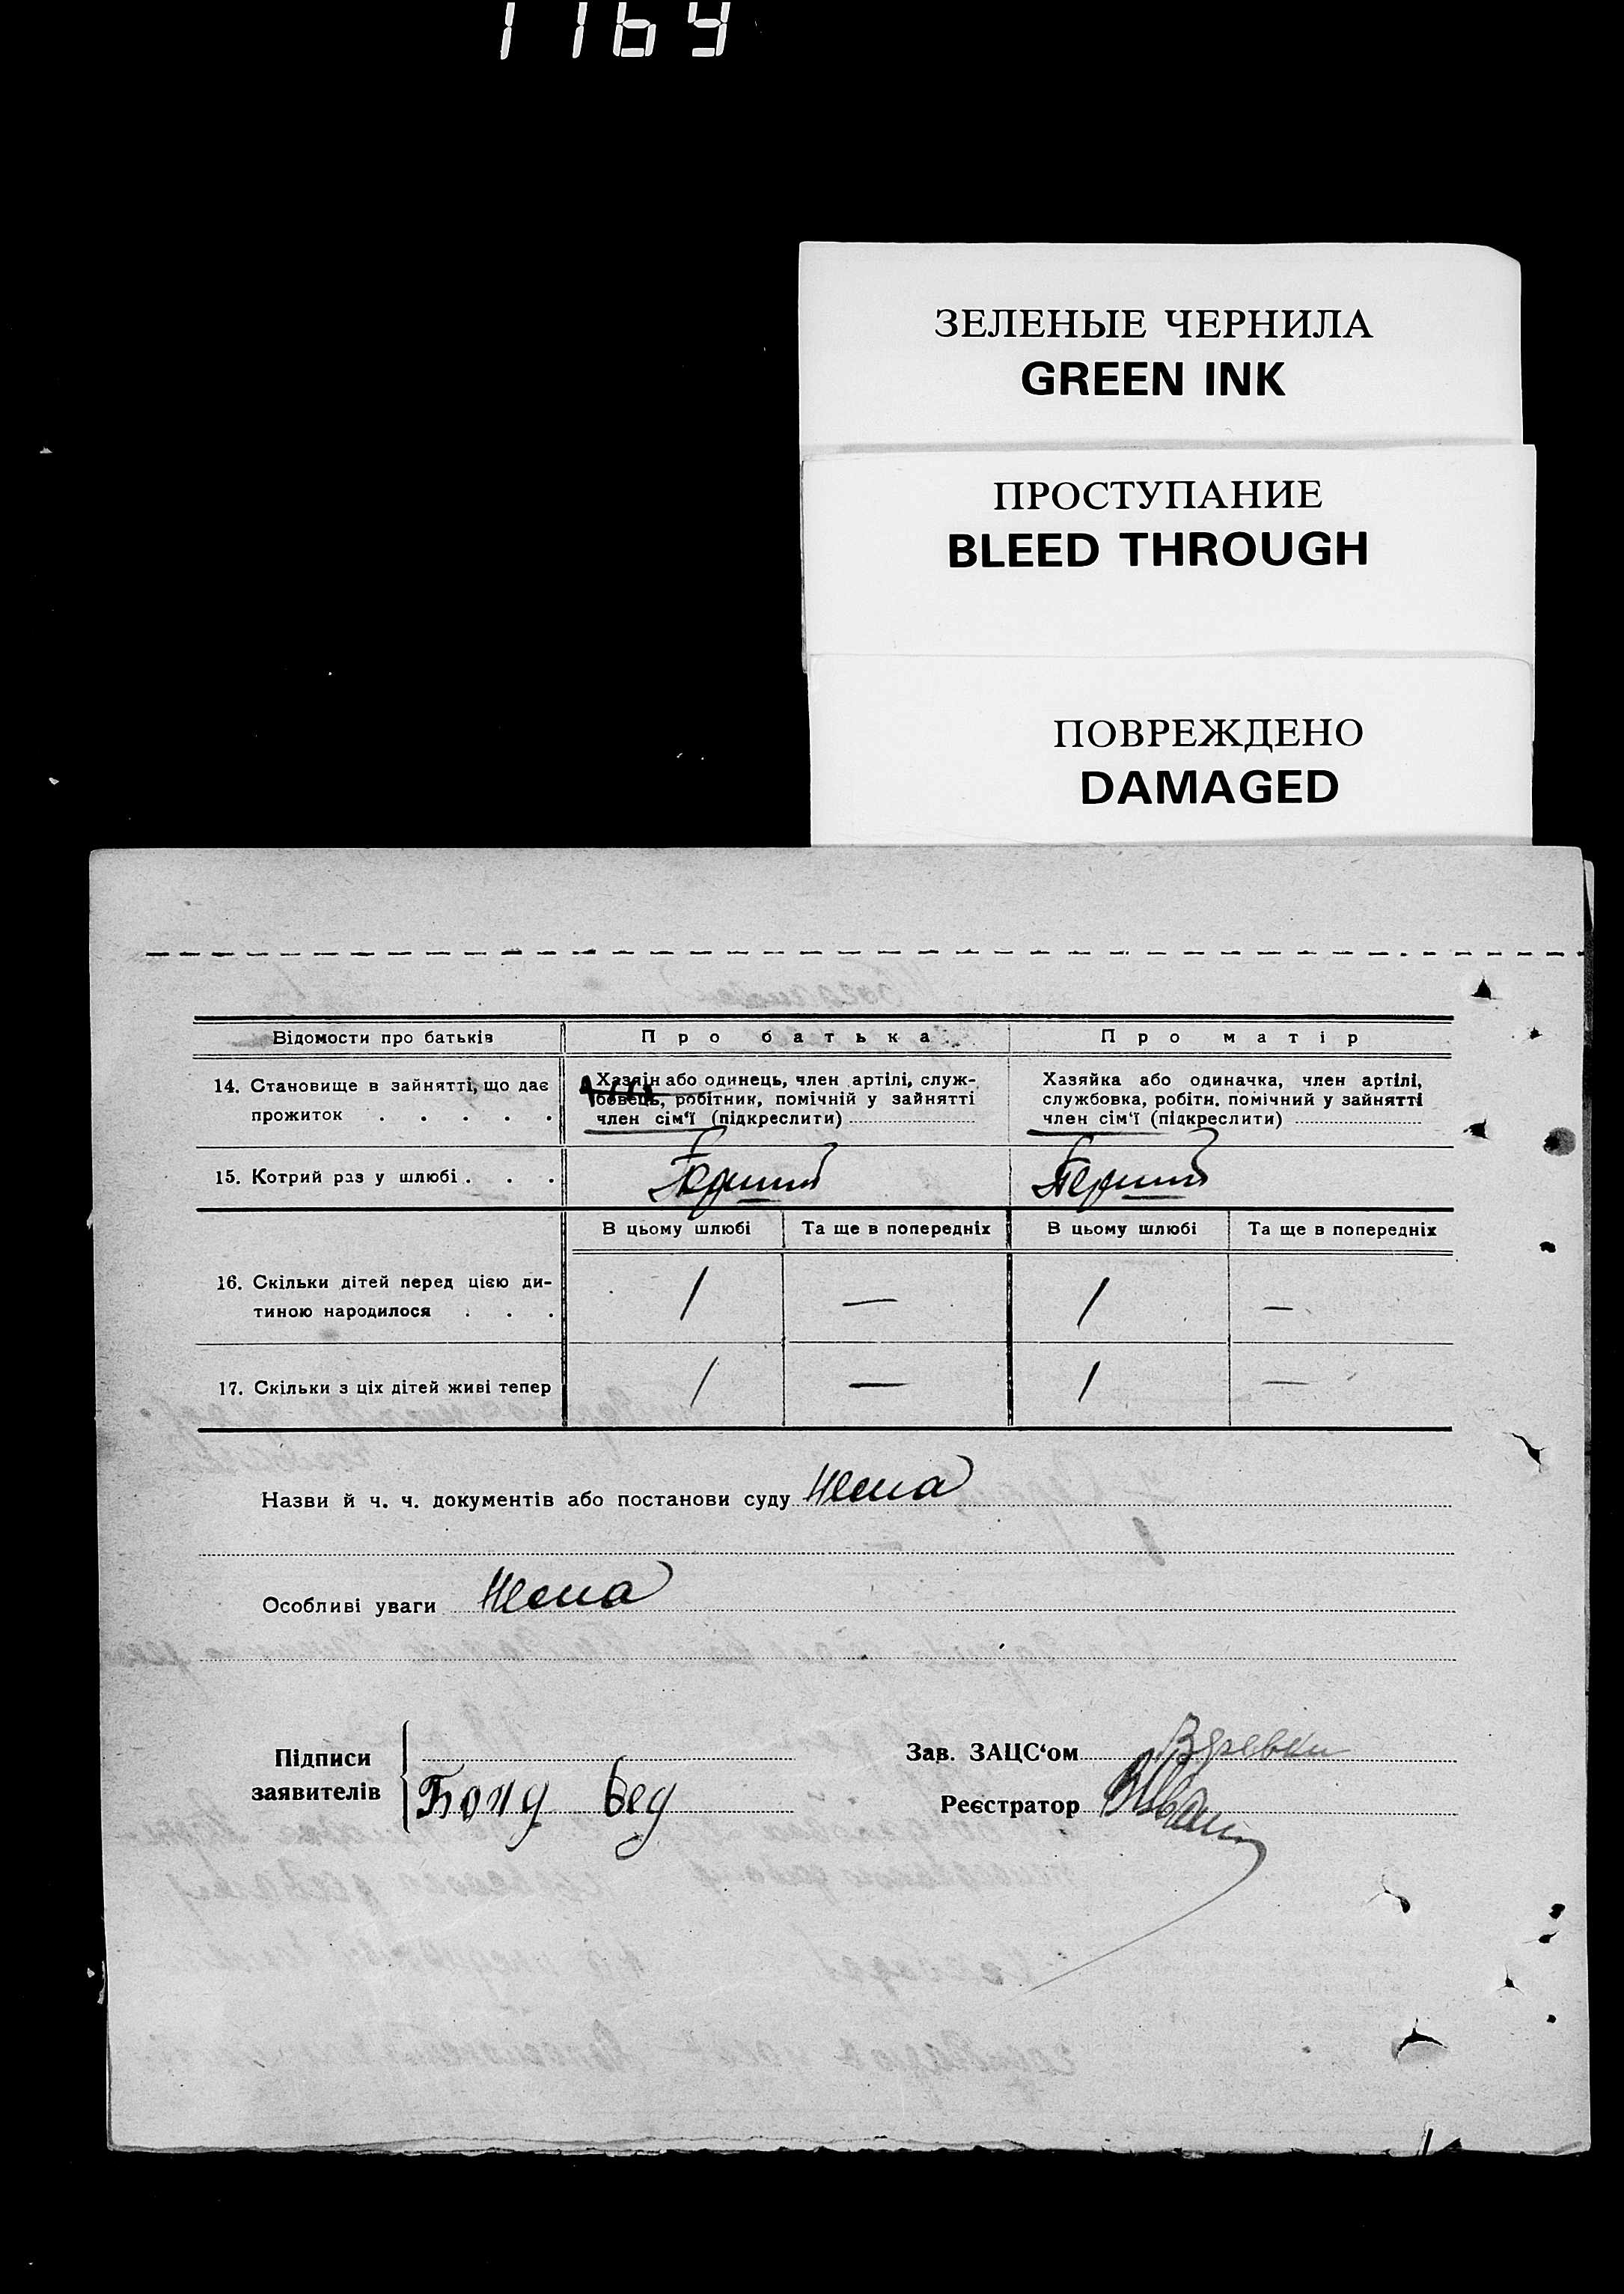 1169
ЗЕЛЕНЫЕ ЧЕРНИЛА
GREEN INK
ПРОСТУПАНИЕ
BLEED THROUGH
ПОВРЕЖДЕНО
DAMAGED
Відомости про батьків Про батька Про матір
14. Становище в зайнятті, що дає прожиток . . . . .
Хазяїн або одинець, член артілі, служ-
бовець, робітник, помічній у зайнятті
член сім'ї (підкреслити)
Хазяйка або одиначка, член артілі,
службовка, робітн. помічний у зайнятті
член сім'ї (підкреслити)
15. Котрий раз у шлюбі . . . Перший Перший
В цьому шлюбі Та ще в попередніх В цьому шлюбі Та ще в попередніх
16. Скільки дітей перед цією ди-
тиною народилося . . . 1 — 1 —
17. Скільки з ціх дітей живі тепер 1 — 1 —
Назви й ч. ч. документів або постанови суду Нема
Особливі уваги Нема
Підписи
заявителів
Зав. ЗАЦС'ом
Реєстратор